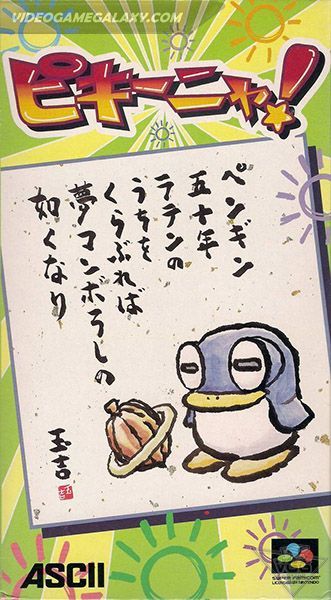 VIDEOGAMEGALAXY.COM
ピキーニャ!
ペンギン
五十年
ラテンの
うちを
くらぶれば
夢マンボろしの
如くなり
玉吉
ASCII
SUPER FAMICOM
LICENSED BY NINTENDO